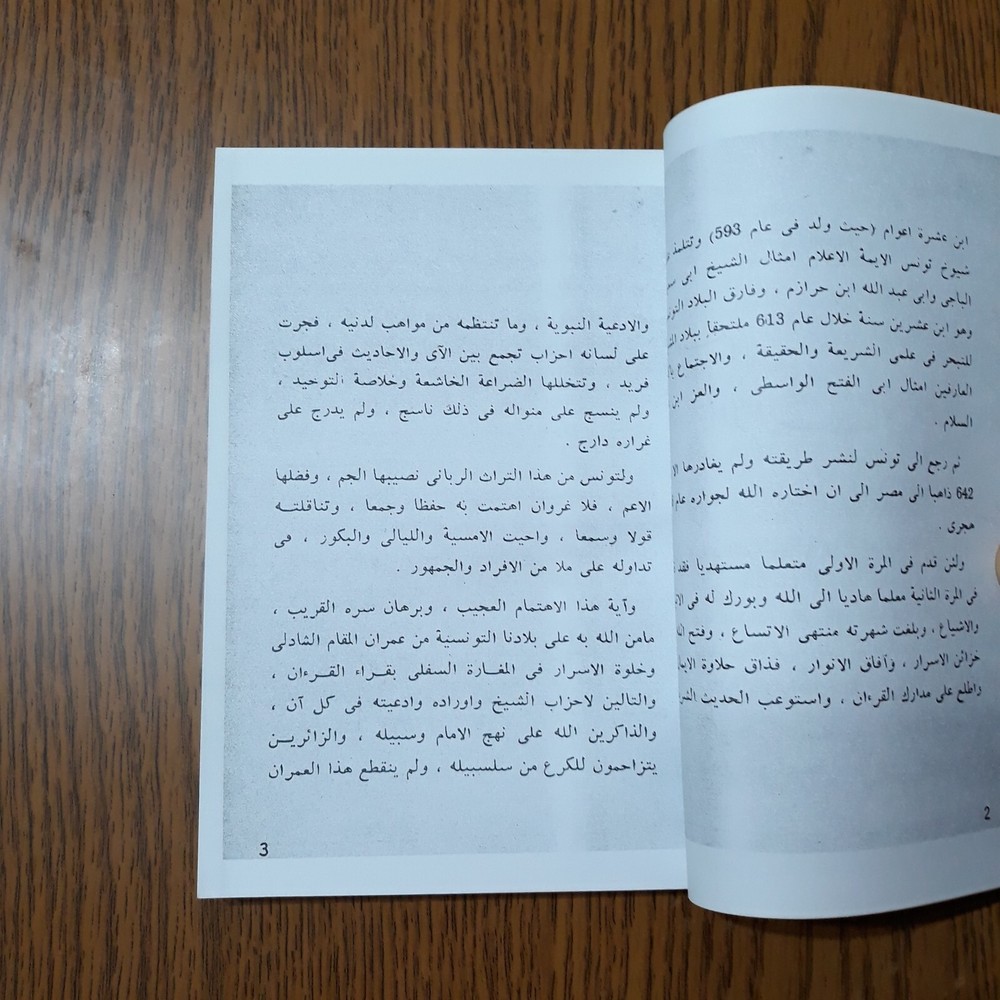 ابن عشرة اعوام (حيث ولد فى عام 593) وتتلمذ
شيوخ تونس الايمة الاعلام امثال الشيخ ابى
الباجى وابى عبد الله ابن حرازم ، وفارق البلاد
وهو ابن عشرين سنة خلال عام 613 ملتحقا ببلاد
للتبحر فى علمى الشريعة والحقيقة ، والاجتماع
العارفين امثال ابى الفتح الواسطى ، والعز ابن
السلام .
ثم رجع الى تونس لنشر طريقته ولم يغادرها
642 ذاهبا الى مصر الى ان اختاره الله لجواره عام
هجرى .
ولئن قدم فى المرة الاولى متعلما مستهديا فقد
فى المرة الثانية معلما هاديا الى الله وبورك له فى
والاشياع ، وبلغت شهرته منتهى الاتساع ، وفتح
خزائن الاسرار ، وآفاق الانوار ، فذاق حلاوة
واطلع على مدارك القرءان ، واستوعب الحديث
2
والادعية النبوية ، وما تنتظمه من مواهب لدنيه ، فجرت
على لسانه احزاب تجمع بين الآى والاحاديث فى اسلوب
فريد ، وتتخللها الضراعة الخاشعة وخلاصة التوحيد ،
ولم ينسج على منواله فى ذلك ناسج ، ولم يدرج على
غراره دارج .
ولتونس من هذا التراث الربانى نصيبها الجم ، وفضلها
الاعم ، فلا غروان اهتمت به حفظا وجمعا ، وتناقلته
قولا وسمعا ، واحيت الامسية والليالى والبكور ، فى
تداوله على ملا من الافراد والجمهور .
وآية هذا الاهتمام العجيب ، وبرهان سره القريب ،
مامن الله به على بلادنا التونسية من عمران المقام الشاذلى
وخلوة الاسرار فى المغارة السفلى بقراء القرءان ،
والتالين لاحزاب الشيخ واوراده وادعيته فى كل آن ،
والذاكرين الله على نهج الامام وسبيله ، والزائرين
يتزاحمون للكرع من سلسبيله ، ولم ينقطع هذا العمران
3